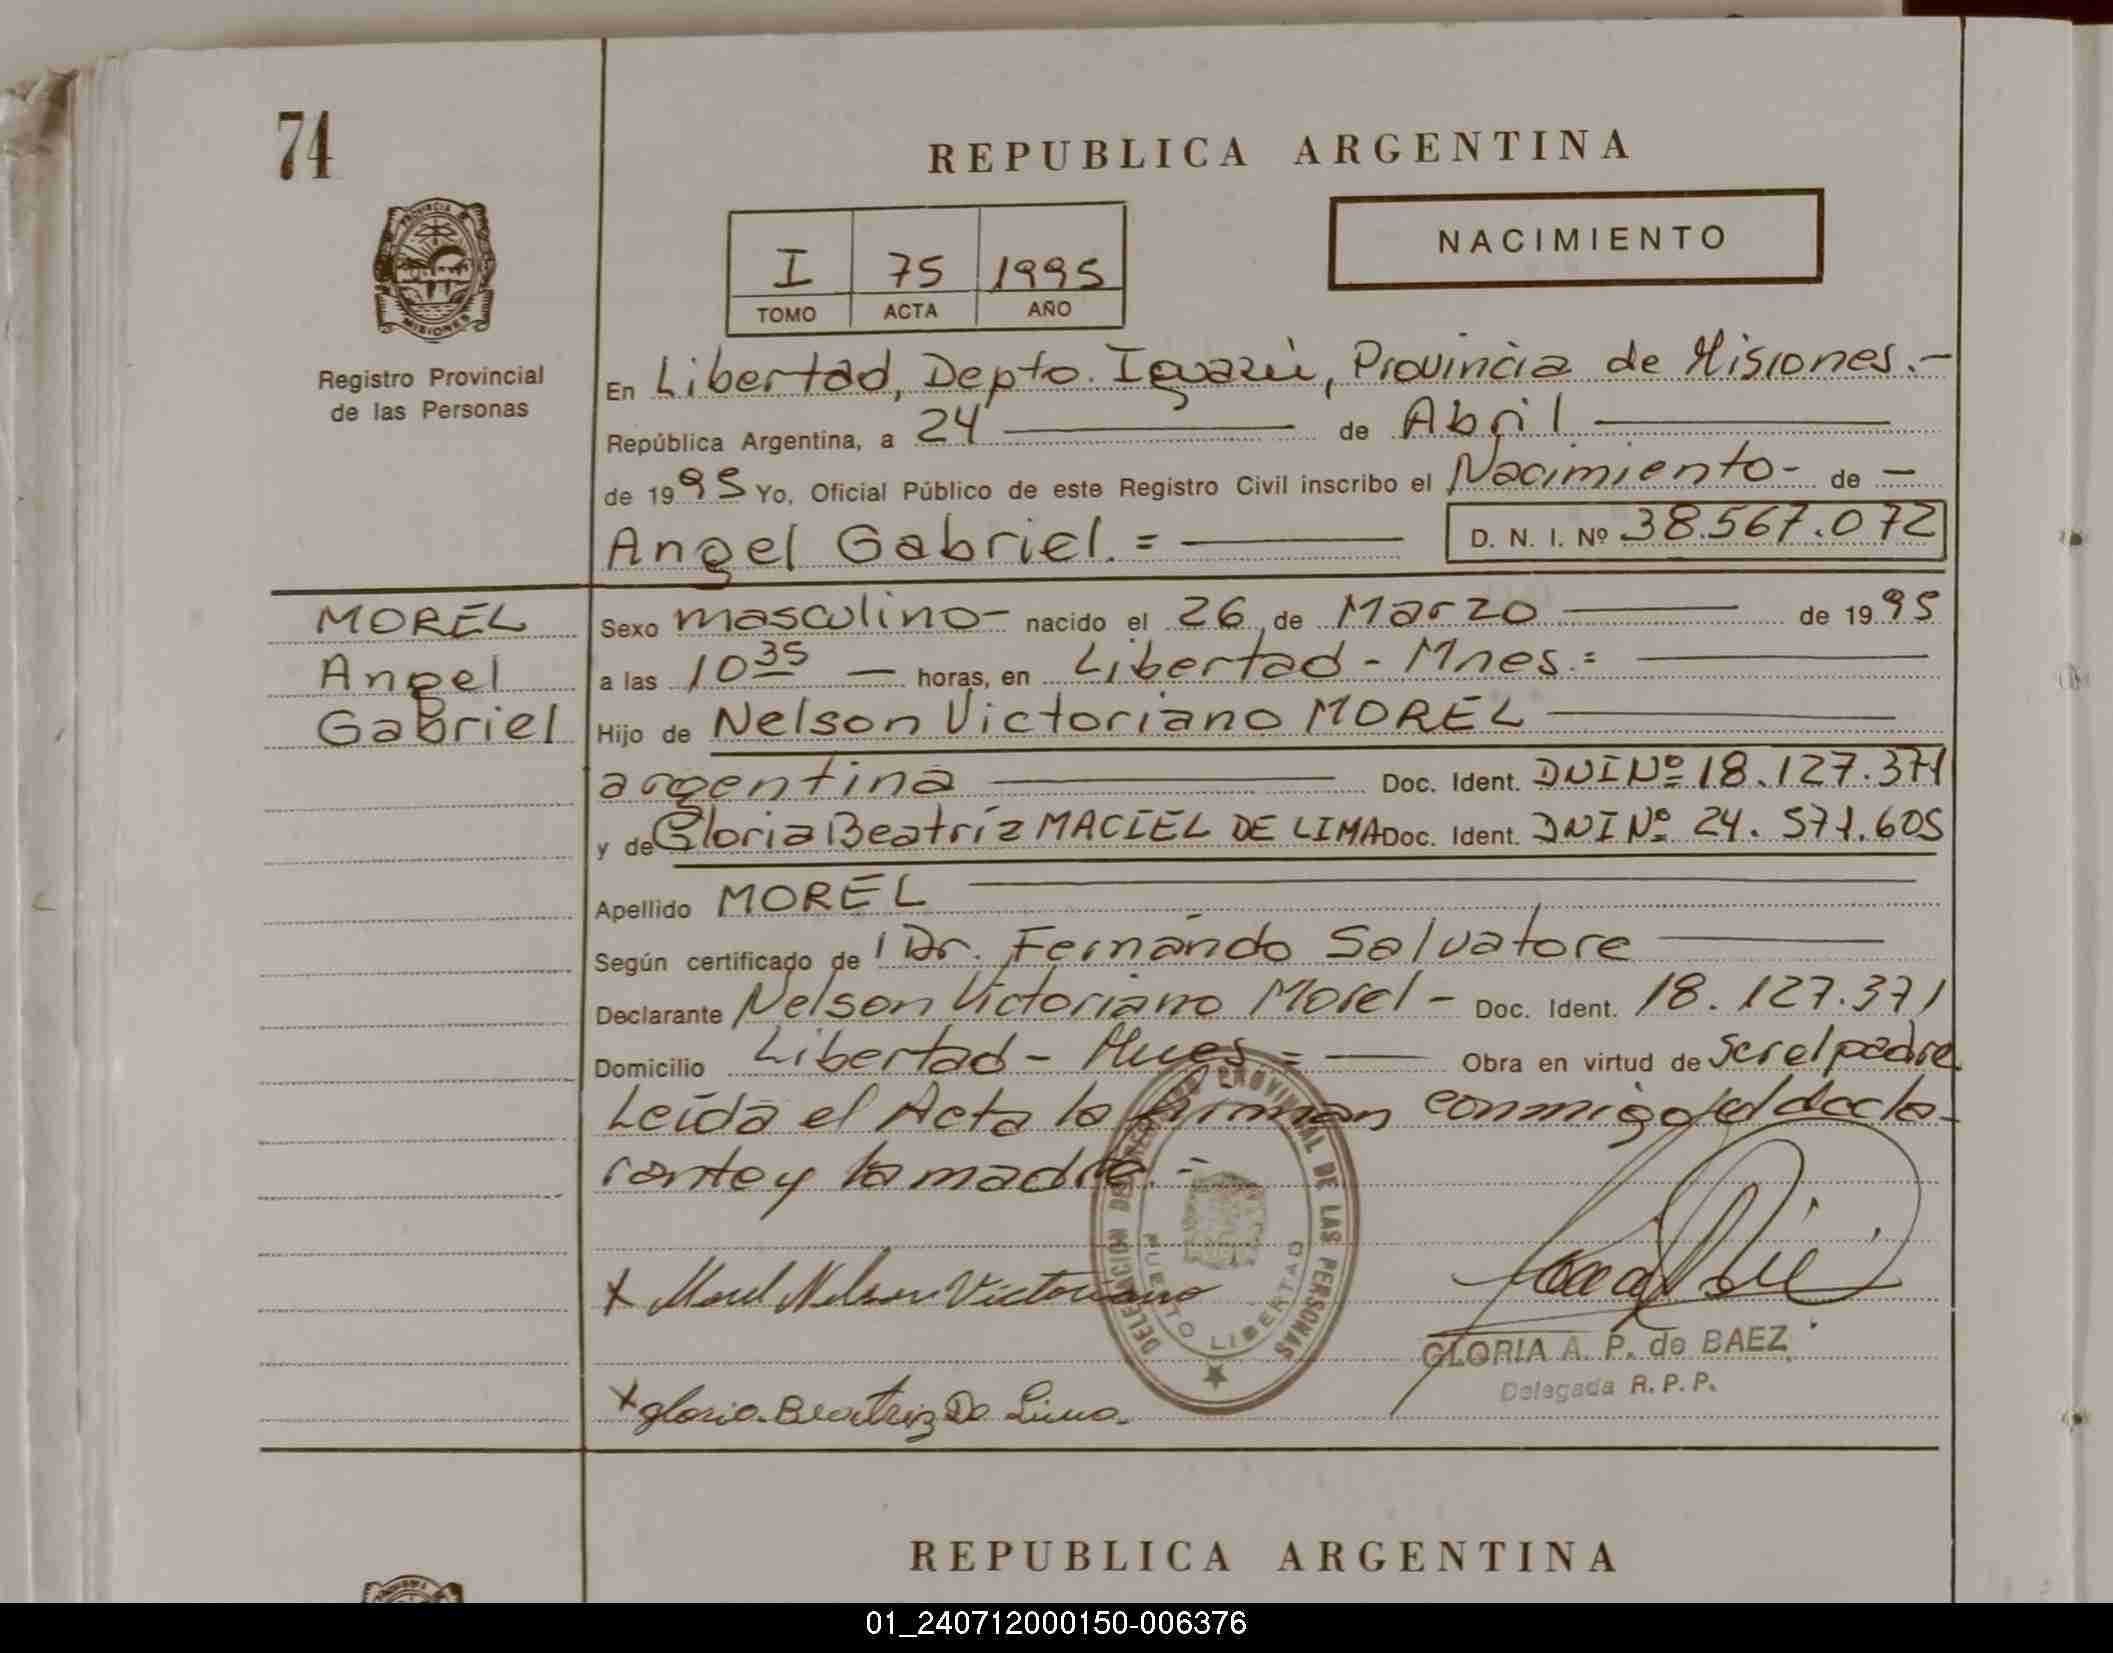 74
REPUBLICA ARGENTINA
NACIMIENTO
I 75 1995
TOMO ACTA AÑO
PROVINCIA
MISIONES
Registro Provincial
de las Personas
En Libertad, Depto. Iguazú, Provincia de Misiones.-
República Argentina, a 24 de Abril
de 1995 Yo, Oficial Público de este Registro Civil inscribo el Nacimiento- de -
Angel Gabriel. = D. N. I. Nº 38.567.072
MOREL
Angel
Gabriel
Sexo masculino- nacido el 26 de Marzo de 1995
a las 10 35 — horas, en Libertad - Mnes.=
Hijo de Nelson Victoriano MOREL
argentina Doc. Ident. DNI Nº 18.127.371
y de Gloria Beatríz MACIEL DE LIMA Doc. Ident. DNI Nº 24.571.605
Apellido MOREL
Según certificado de Dr. Fernándo Salvatore
Declarante Nelson Victoriano Morel - Doc. Ident. 18.127.371
Domicilio Libertad - Mnes = Obra en virtud de ser el padre
Leída el Acta la firman conmigo el decla-
rante y la madre.=
DELEGACION DEL REGISTRO PROVINCIAL DE LAS PERSONAS
PUERTO LIBERTAD
x Morel Nelson Victoriano
GLORIA A. P. de BAEZ
Delegada R. P. P.
x gloria Beatriz De Lima.
REPUBLICA ARGENTINA
01_240712000150-006376